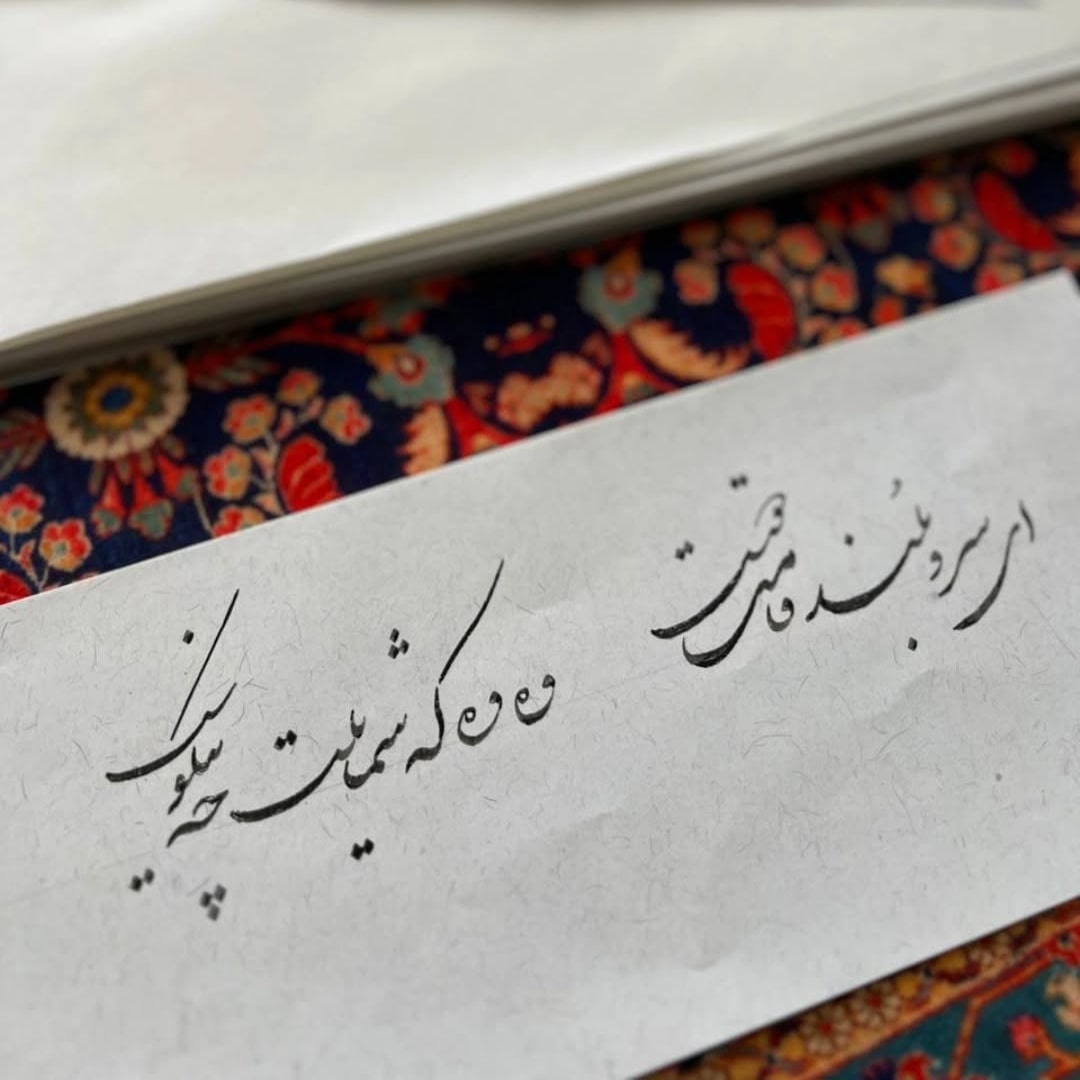 ای سرو بلند قامت دوست
وه وه که شمایلت چه نیکوست